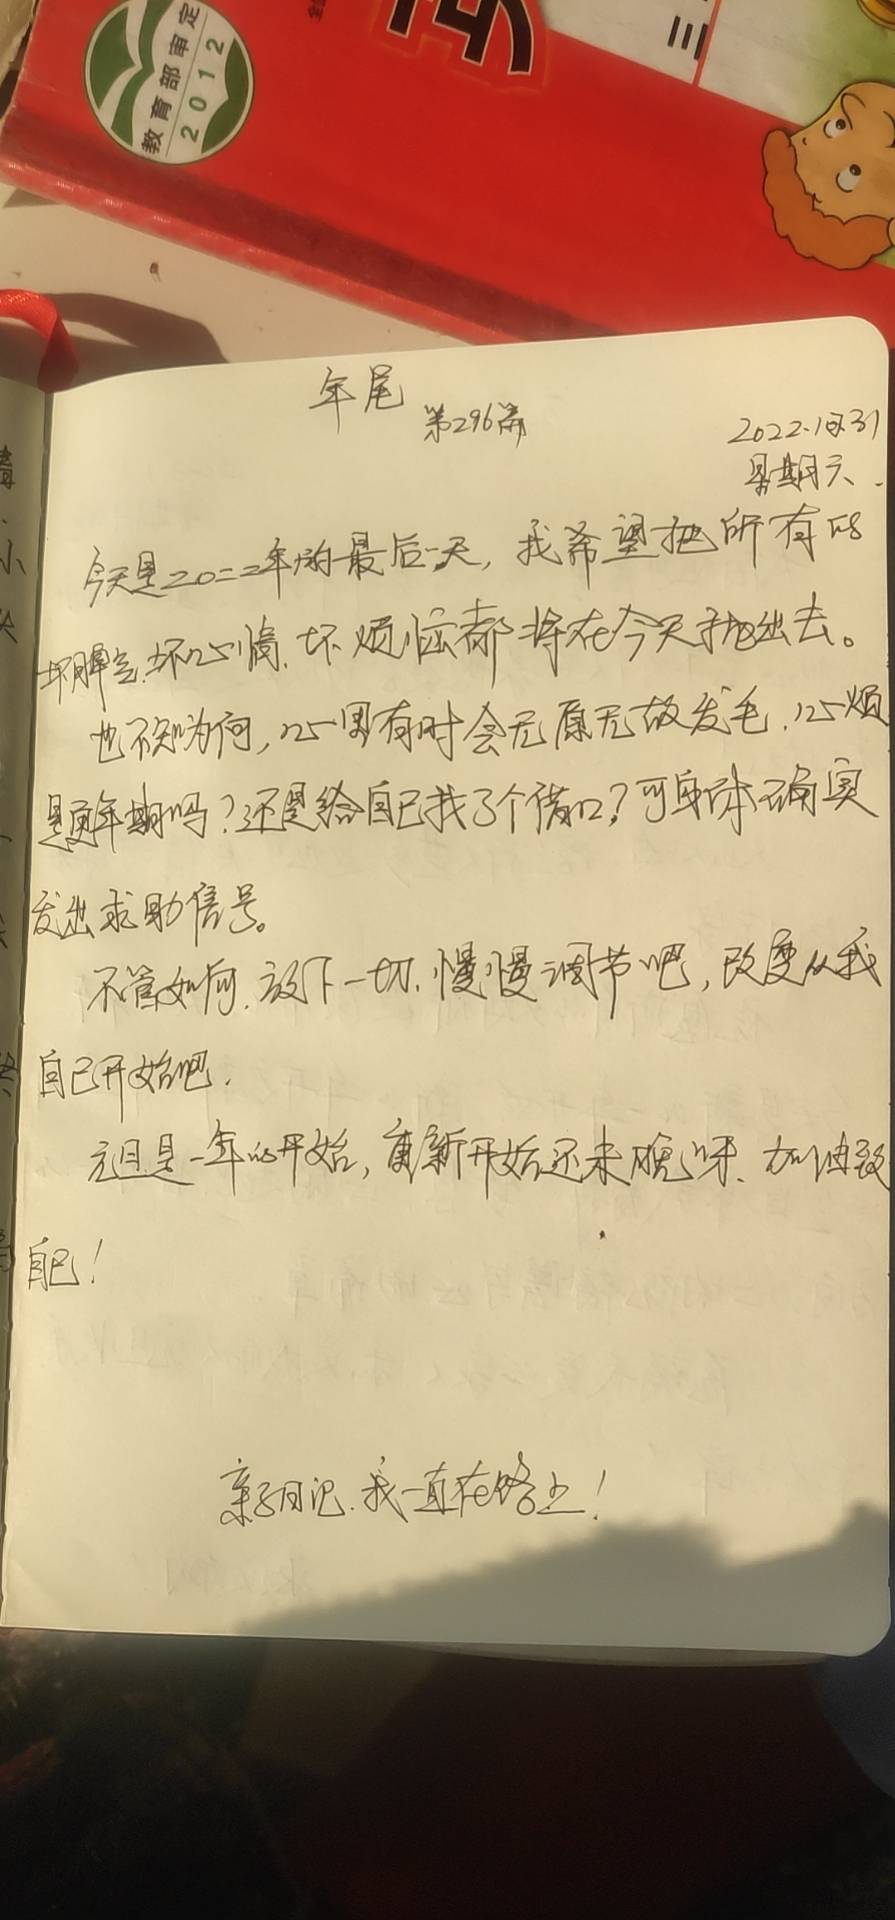 教育部审定
2012
三
年尾
第296篇
2022.12.31
星期六.
今天是二0二二年的最后一天,我希望把所有的
坏脾气.坏心情.坏烦恼都将在今天抛出去。
也不知为何,心里有时会无原无故发毛.心烦
是更年期吗?还是给自己找了个借口?可身体确实
发出求助信号。
不管如何.放下一切.慢慢调节吧,改变从我
自己开始吧.
元旦是一年的开始,重新开始还未晚呀.加油致
自己!
亲子日记.我一直在路上!